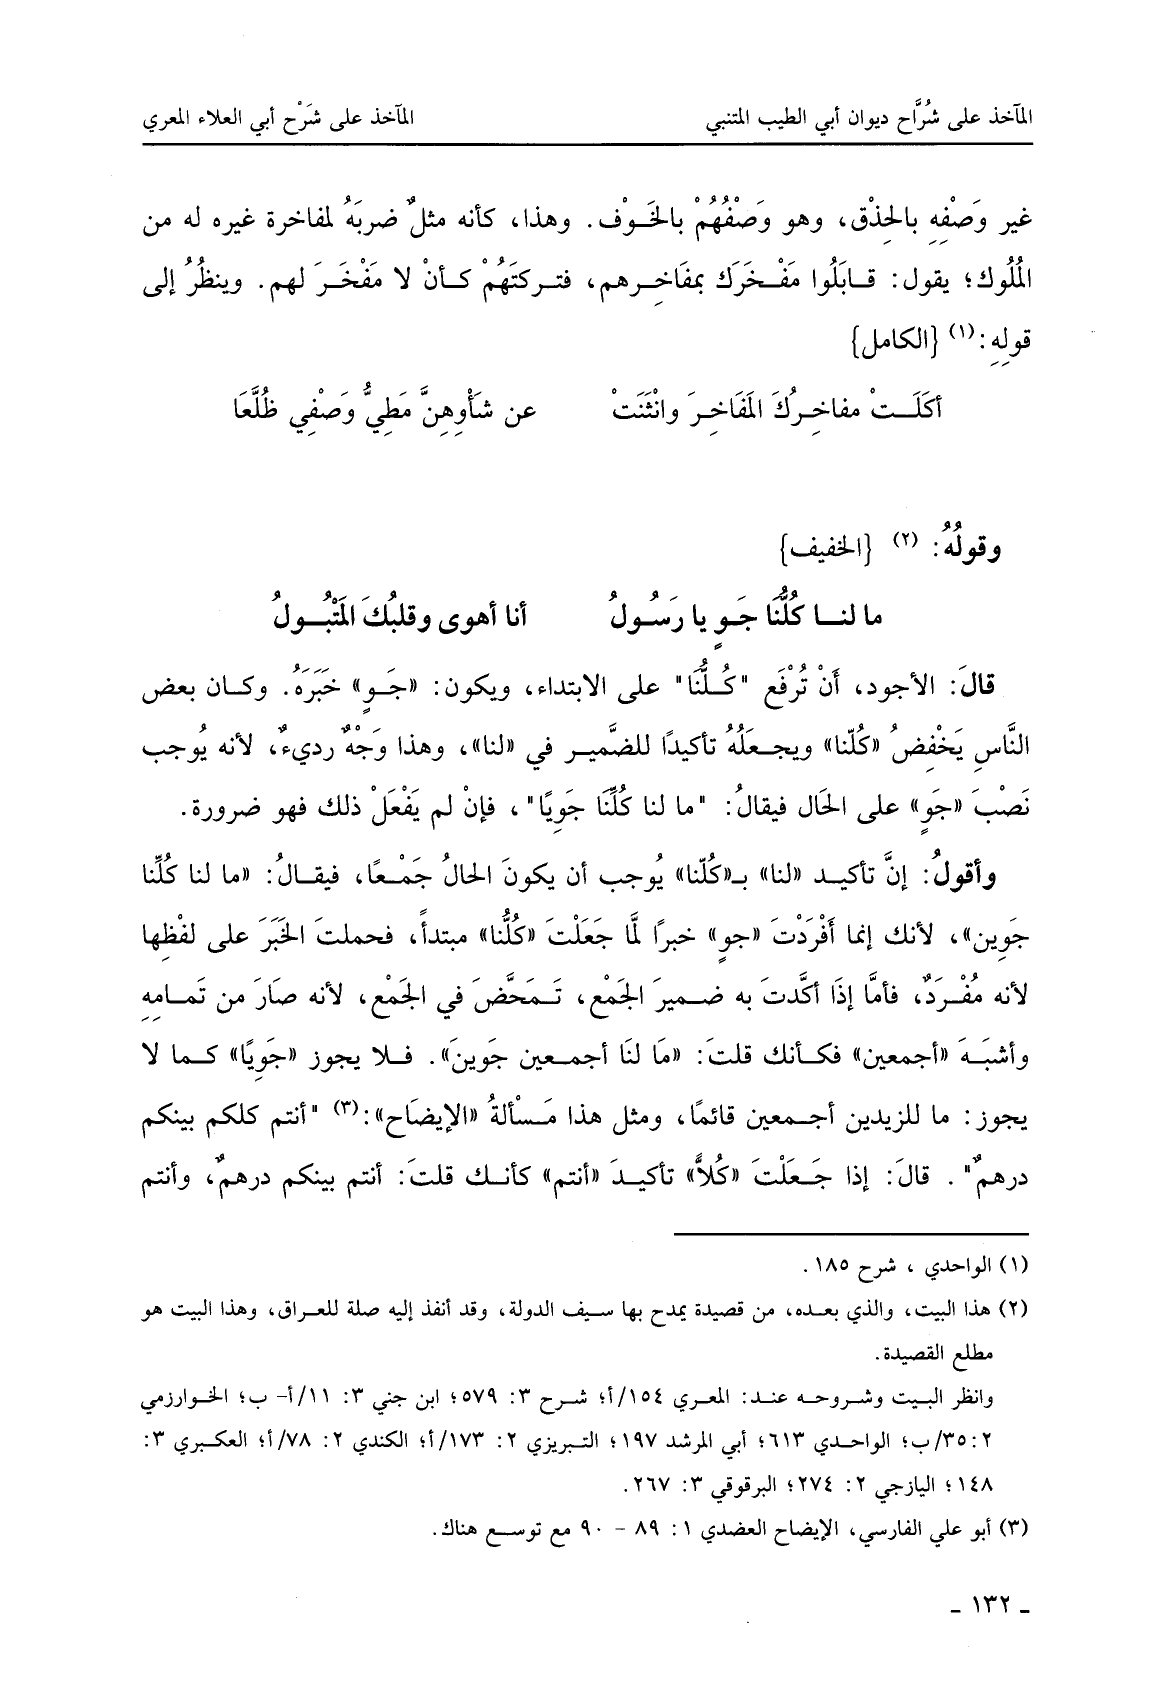 المآخذ على شُرَّاح ديوان أبي الطيب المتنبي المآخذ على شَرْح أبي العلاء المعري
غير وَصْفِهِ بالحِذْق، وهو وَصْفُهُمْ بالخَوْف. وهذا، كأنه مثلٌ ضربَهُ لمفاخرة غيره له من
المُلُوك؛ يقول: قابَلُوا مَفْخَرَك بمفَاخِرهم، فتركتَهُمْ كأنْ لا مَفْخَرَ لهم. وينظُرُ إلى
قولِهِ:(١) {الكامل}
أكَلَتْ مفاخِرُكَ المَفَاخِرَ وانْثَنَتْ عن شَأْوِهِنَّ مَطِيُّ وَصْفِي ظُلَّعَا
وقولُهُ: (٢) {الخفيف}
ما لنا كُلُّنَا جَوٍ يا رَسُولُ أنا أهوى وقلبُكَ المَتْبُولُ
قالَ: الأجود، أَنْ تُرْفَع "كُلُّنَا" على الابتداء، ويكون: «جَوٍ» خَبَرَهُ. وكان بعض
النَّاسِ يَخْفِضُ «كُلّنا» ويجعَلُهُ تأكيدًا للضَّمير في «لنا»، وهذا وَجْهٌ رديءٌ، لأنه يُوجب
نَصْبَ «جَوٍ» على الحَال فيقالُ: "ما لنا كُلِّنَا جَوِيًا"، فإنْ لم يَفْعَلْ ذلك فهو ضرورة.
وأقولُ: إنَّ تأكيد «لنا» بـ«كُلّنا» يُوجب أن يكونَ الحالُ جَمْعًا، فيقالُ: «ما لنا كُلِّنا
جَوِين»، لأنك إنما أفْرَدْتَ «جوٍ» خبرًا لمَّا جَعَلْتَ «كُلُّنا» مبتدأً، فحملتَ الخَبَرَ على لفظِها
لأنه مُفْرَدٌ، فأمَّا إذَا أكَّدتَ به ضميرَ الجَمْع، تَمَحَّضَ في الجَمْع، لأنه صَارَ من تَمامِهِ
وأشبَهَ «أجمعين» فكأنك قلتَ: «مَا لنَا أجمعين جَوِينَ». فلا يجوز «جَوِيًا» كما لا
يجوز: ما للزيدين أجمعين قائمًا، ومثل هذا مَسْألةُ «الإيضَاح»:(٣) "أنتم كلكم بينكم
درهمٌ". قالَ: إذا جَعَلْتَ «كُلاًّ» تأكيدَ «أنتم» كأنك قلتَ: أنتم بينكم درهمٌ، وأنتم
(١) الواحدي ، شرح ١٨٥.
(٢) هذا البيت، والذي بعده، من قصيدة يمدح بها سيف الدولة، وقد أنفذ إليه صلة للعراق، وهذا البيت هو
مطلع القصيدة.
وانظر البيت وشروحه عند: المعري ١٥٤/أ؛ شرح ٣: ٥٧٩؛ ابن جني ٣: ١١/أ- ب؛ الخوارزمي
٢: ٣٥/ب؛ الواحدي ٦١٣؛ أبي المرشد ١٩٧؛ التبريزي ٢: ١٧٣/أ؛ الكندي ٢: ٧٨/أ؛ العكبري ٣:
١٤٨؛ اليازجي ٢: ٢٧٤؛ البرقوقي ٣: ٢٦٧.
(٣) أبو علي الفارسي، الإيضاح العضدي ١: ٨٩ - ٩٠ مع توسع هناك.
ـ ١٣٢ ـ